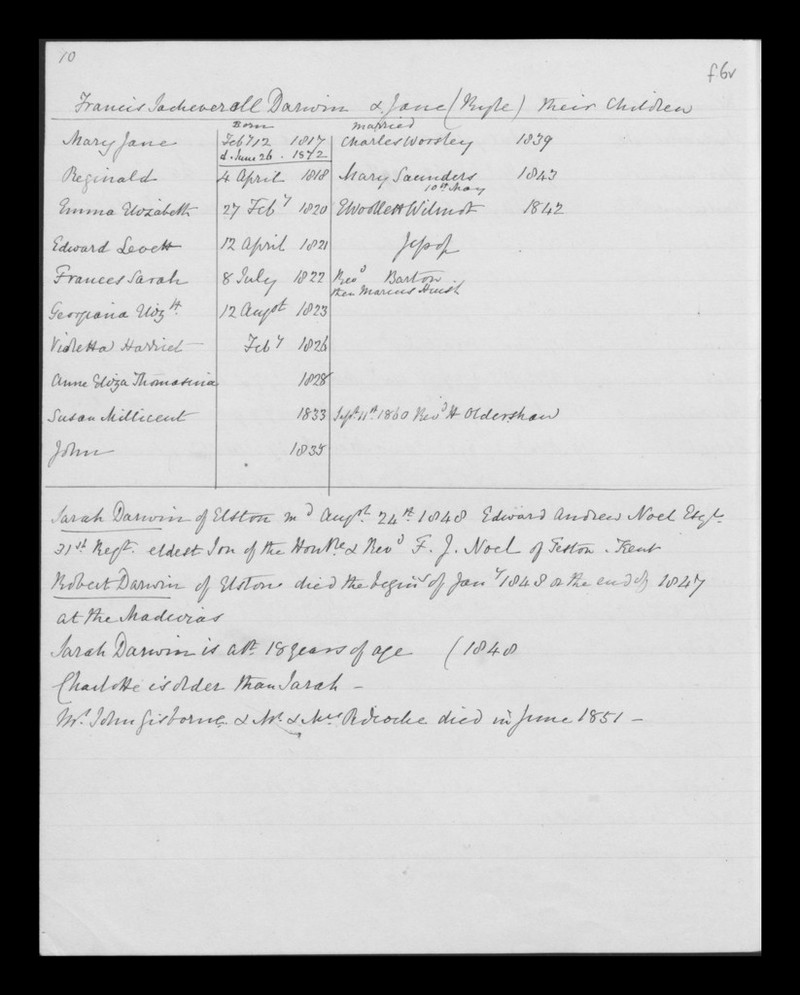 10
f6v
Francis Sacheverell Darwin & Jane (Ryle) their Children
Born married
Mary Jane Feby 12 1817 Charles Worsley 1839
d. June 26. 1872
Reginald 4 April 1818 Mary Saunders 1843
10th May
Emma Elizabeth 27 Feby 1820 E Woollett Wilmot 1842
Edward Levett 12 April 1821 Jessop
Frances Sarah 8 July 1822 Revd Barton
then Marcus Huish
Georgiana Elizth 12 Augst 1823
Violetta Harriet Feby 1826
Anne Eliza Thomasina 1828
Susan Millicent 1833 Sept 11th 1860 Revd H Oldershaw
John 1835
Sarah Darwin of Elston md Augst 24th 1848 Edward Andrew Noel Esqr
31st Regt. eldest Son of the Honble & Revd F. J. Noel of Teston. Kent
Robert Darwin of Elston died the begin of Jany 1848 or the end of 1847
at the Madeiras
Sarah Darwin is abt. 18 years of age (1848
Charlotte is older than Sarah -
Mr. John Gisborne & Mr. & Mrs died in June 1851 -